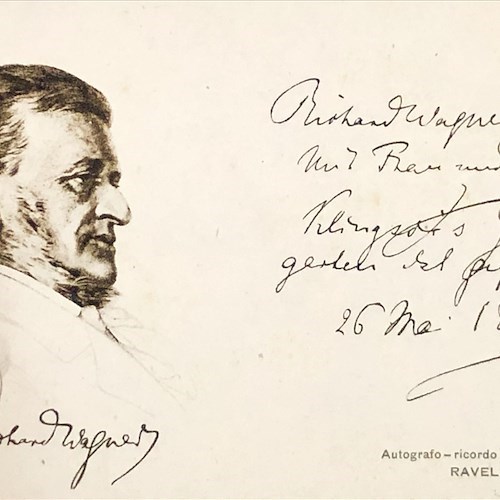 Richard Wagner
mit Frau und
Klingsor's
garten ist
26 Mai 18
hard Wagner
Autografo – ricordo
RAVEL